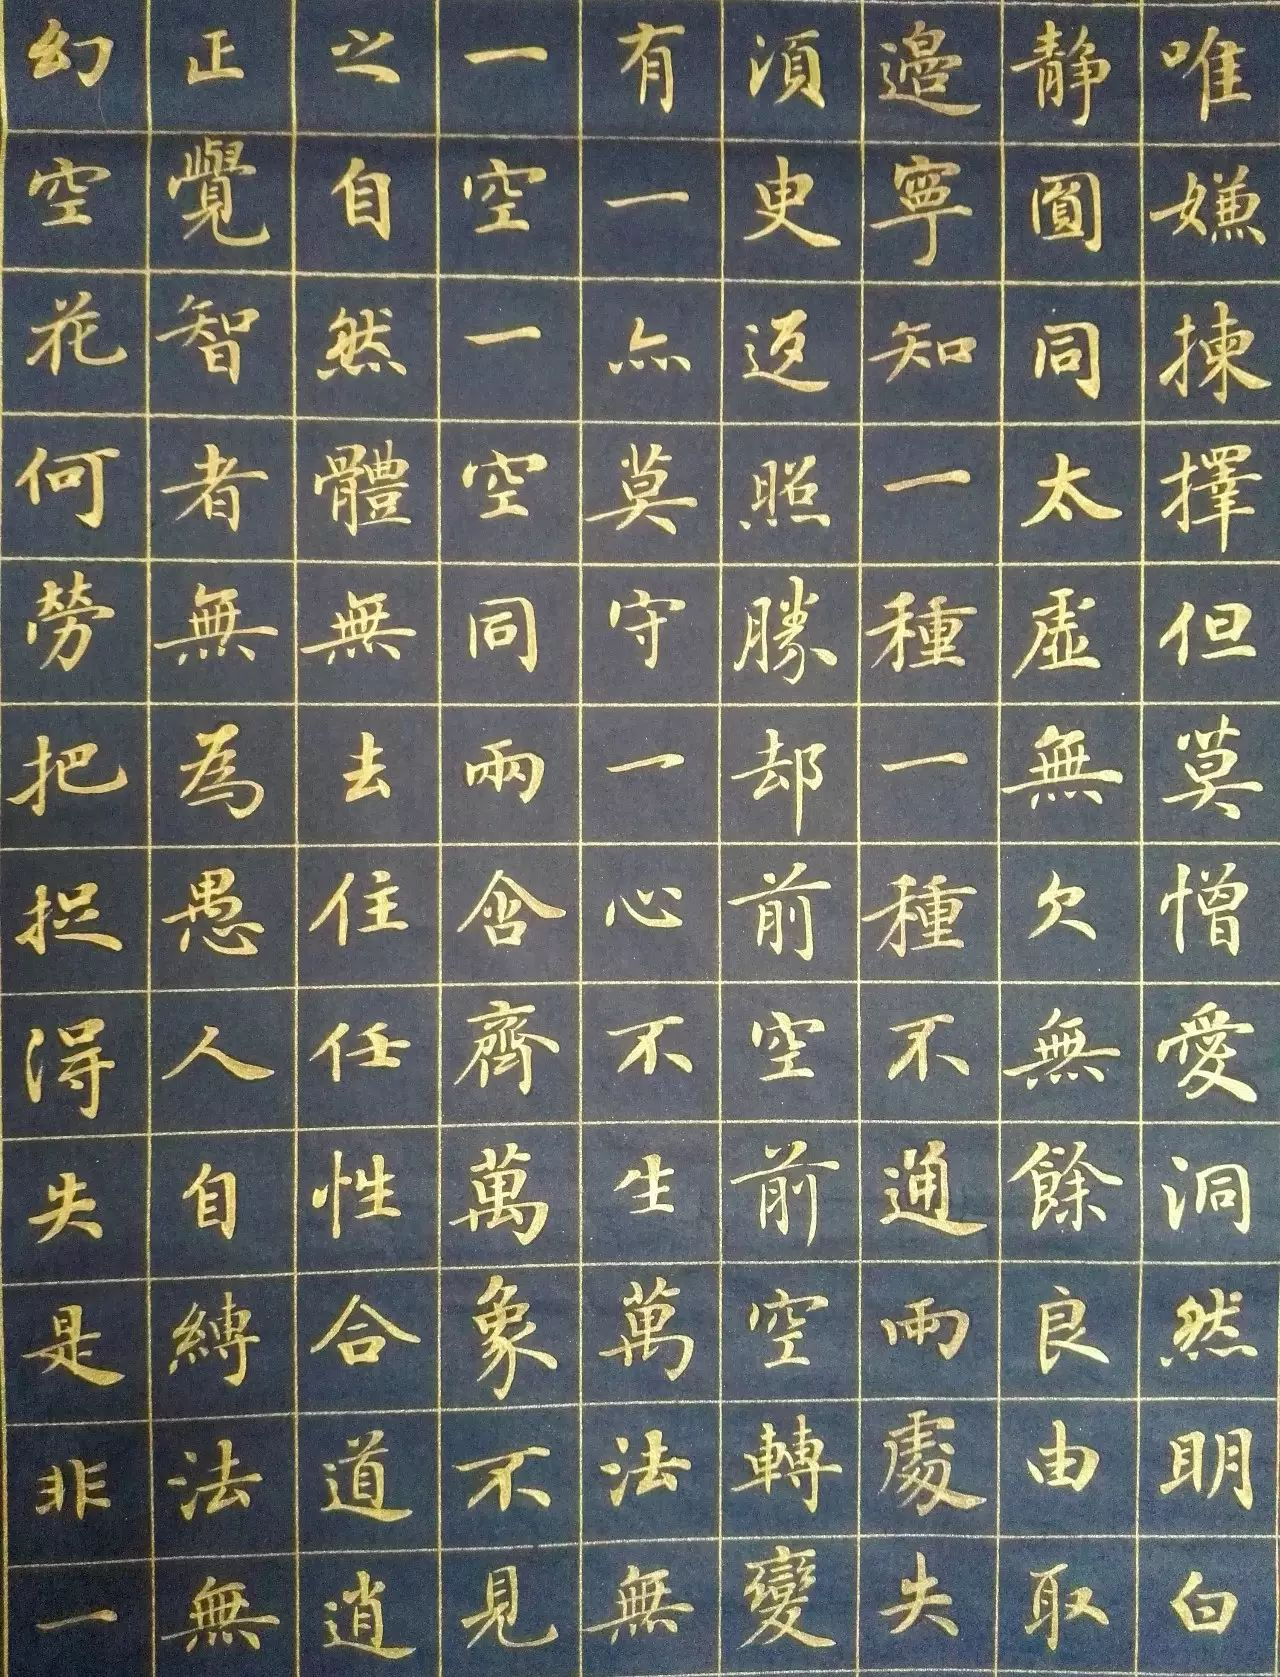 唯嫌揀擇但莫憎愛洞然明白
静圓同太虛無欠無餘良由取
邊寧知一種一種不通兩處失
須臾返照勝却前空前空轉變
有一亦莫守一心不生萬法無
一空一空同兩含齊萬象不見
之自然體無去住任性合道逍
正覺智者無為愚人自縛法無
幻空花何勞把捉得失是非一